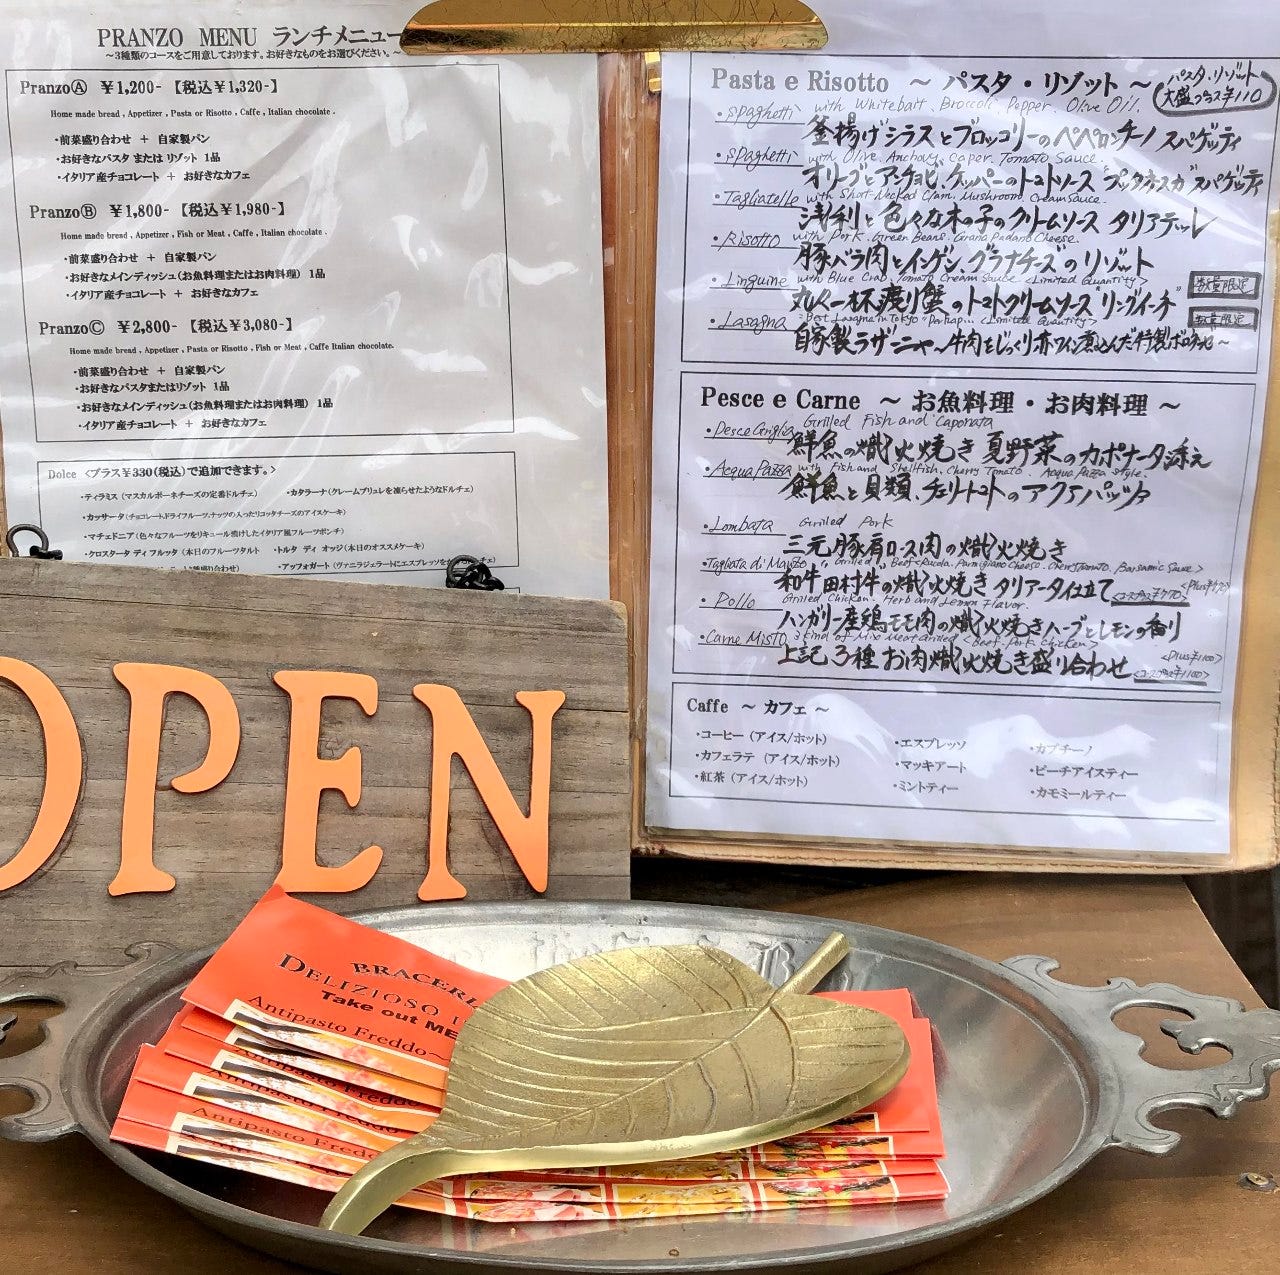 PRANZO MENU ランチメニュー
～3種類のコースをご用意しております。お好きなものをお選びください。～
PranzoⒶ ￥1,200- 【税込￥1,320-】
Home made bread , Appetizer , Pasta or Risotto , Caffe , Italian chocolate .
・前菜盛り合わせ ＋ 自家製パン
・お好きなパスタ または リゾット 1品
・イタリア産チョコレート ＋ お好きなカフェ
PranzoⒷ ￥1,800- 【税込￥1,980-】
Home made bread , Appetizer , Fish or Meat , Caffe , Italian chocolate .
・前菜盛り合わせ ＋ 自家製パン
・お好きなメインディッシュ(お魚料理またはお肉料理) 1品
・イタリア産チョコレート ＋ お好きなカフェ
PranzoⒸ ￥2,800- 【税込￥3,080-】
Home made bread , Appetizer , Pasta or Risotto , Fish or Meat , Caffe Italian chocolate.
・前菜盛り合わせ ＋ 自家製パン
・お好きなパスタまたはリゾット 1品
・お好きなメインディッシュ(お魚料理またはお肉料理) 1品
・イタリア産チョコレート ＋ お好きなカフェ
Dolce <プラス￥330(税込)で追加できます。>
・ティラミス (マスカルポーネチーズの定番ドルチェ) ・カタラーナ(クレームブリュレを凍らせたようなドルチェ)
・カッサータ(チョコレート,ドライフルーツ,ナッツの入ったリコッタチーズのアイスケーキ)
・マチェドニア(色々なフルーツをリキュール漬けしたイタリア風フルーツポンチ)
・クロスタータ ディ フルッタ (本日のフルーツタルト ・トルタ ディ オッジ(本日のオススメケーキ)
盛り合わせ) ・アッフォガート (ヴァニラジェラートにエスプレッソを チェ)
Pasta e Risotto ～ パスタ・リゾット ～
パスタ・リゾット
大盛プラス¥110
・Spaghetti with Whitebait, Broccoli, Pepper, Olive Oil.
釜揚げシラスとブロッコリーのペペロンチーノ スパゲッティ
・Spaghetti with Olive, Anchovy, Caper, Tomato Sauce.
オリーブとアンチョビ、ケッパーのトマトソース "プッタネスカ" スパゲッティ
・Tagliatelle with Short-Necked Clam, Mushroom, Cream Sauce.
浅利と色々な木の子のクリームソース タリアテッレ
・Risotto with Pork, Green Beans, Grana Padano Cheese.
豚バラ肉とインゲン、グラナチーズのリゾット
・Linguine with Blue Crab, Tomato Cream Sauce <Limited Quantity>
丸ぐ一杯渡り蟹のトマトクリームソース リングイーネ 数量限定
・Lasagna "Best Lasagna in Tokyo" Perhap... <Limited Quantity> 数量限定
自家製ラザーニャ～牛肉をじっくり赤ワイン煮込んだ特製ボロネーゼ～
Pesce e Carne ～ お魚料理・お肉料理 ～
・Pesce Griglia Grilled Fish and Caponata
鮮魚の熾火焼き 夏野菜のカポナータ添え
・Acqua Pazza with Fish and Shellfish, Cherry Tomato. Acqua Pazza style.
鮮魚と貝類、チェリートマトのアクアパッツァ
・Lombata Grilled Pork
三元豚肩ロース肉の熾火焼き
・Tagliata di Manzo Grilled Beef, Rucola, Parmigiano Cheese, Cherry Tomato, Balsamic Sauce
和牛田村牛の熾火焼き タリアータ仕立て <コースプラス¥770> <Plus¥770>
・Pollo Grilled Chicken, Herb and Lemon Flavor.
ハンガリー産鶏モモ肉の熾火焼き ハーブとレモンの香り
・Carne Misto 3 kind of Mix Meat Grilled <Beef, Pork, Chicken>
上記3種お肉熾火焼き盛り合わせ <コースプラス¥1100> <Plus¥1100>
Caffe ～ カフェ ～
・コーヒー (アイス/ホット) ・エスプレッソ ・カプチーノ
・カフェラテ (アイス/ホット) ・マッキアート ・ピーチアイスティー
・紅茶 (アイス/ホット) ・ミントティー ・カモミールティー
OPEN
BRACERI
DELIZIOSO I
Take out ME
Antipasto Freddo～
Antipasto Freddo
Antipasto Freddo